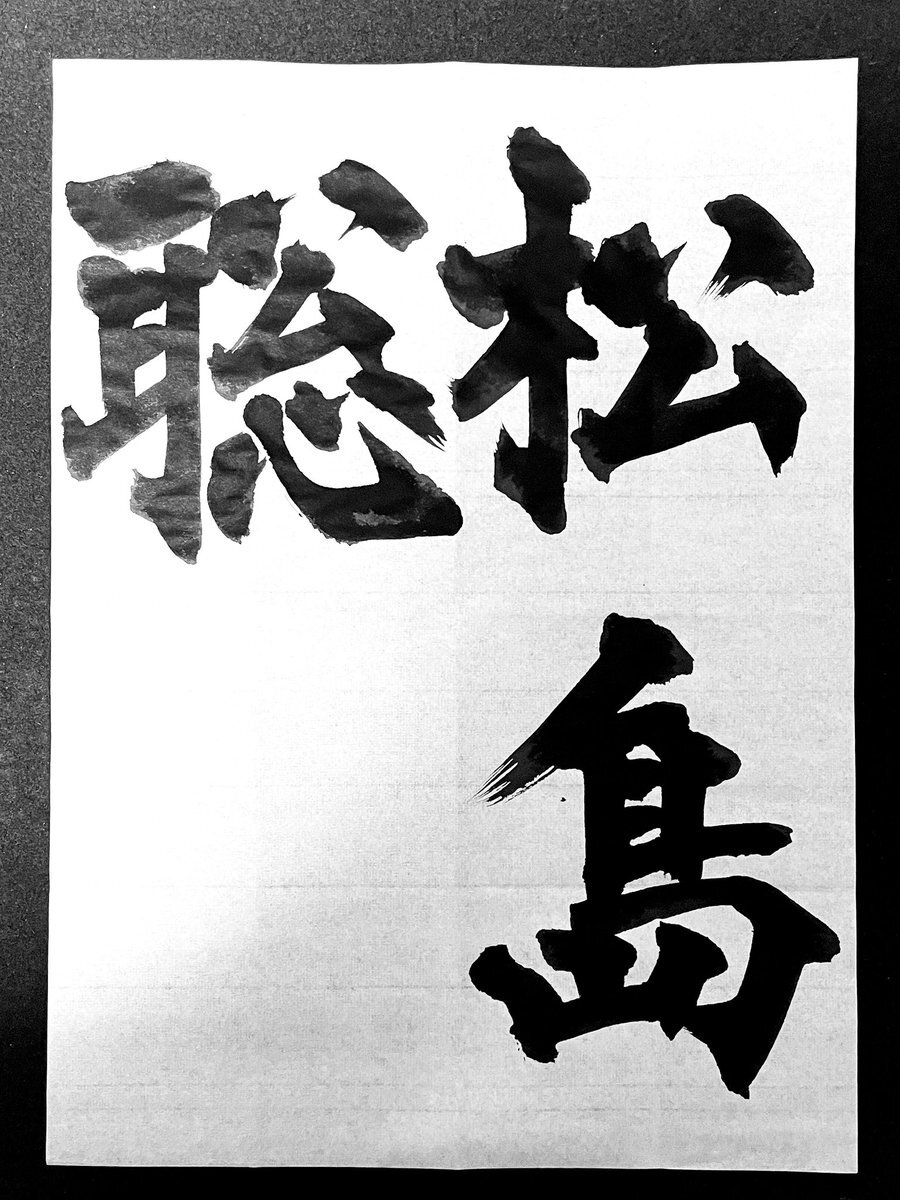 松島
聡